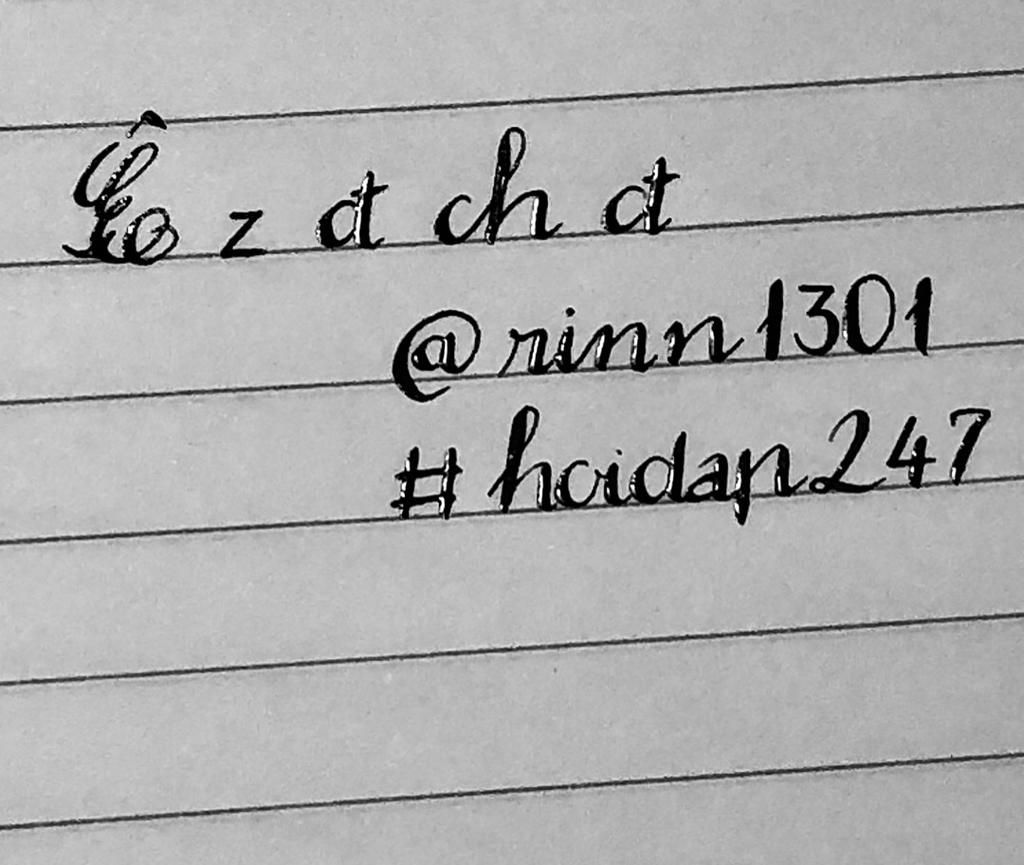 Ê z đ ch đ
@rinn1301
#hoidap247